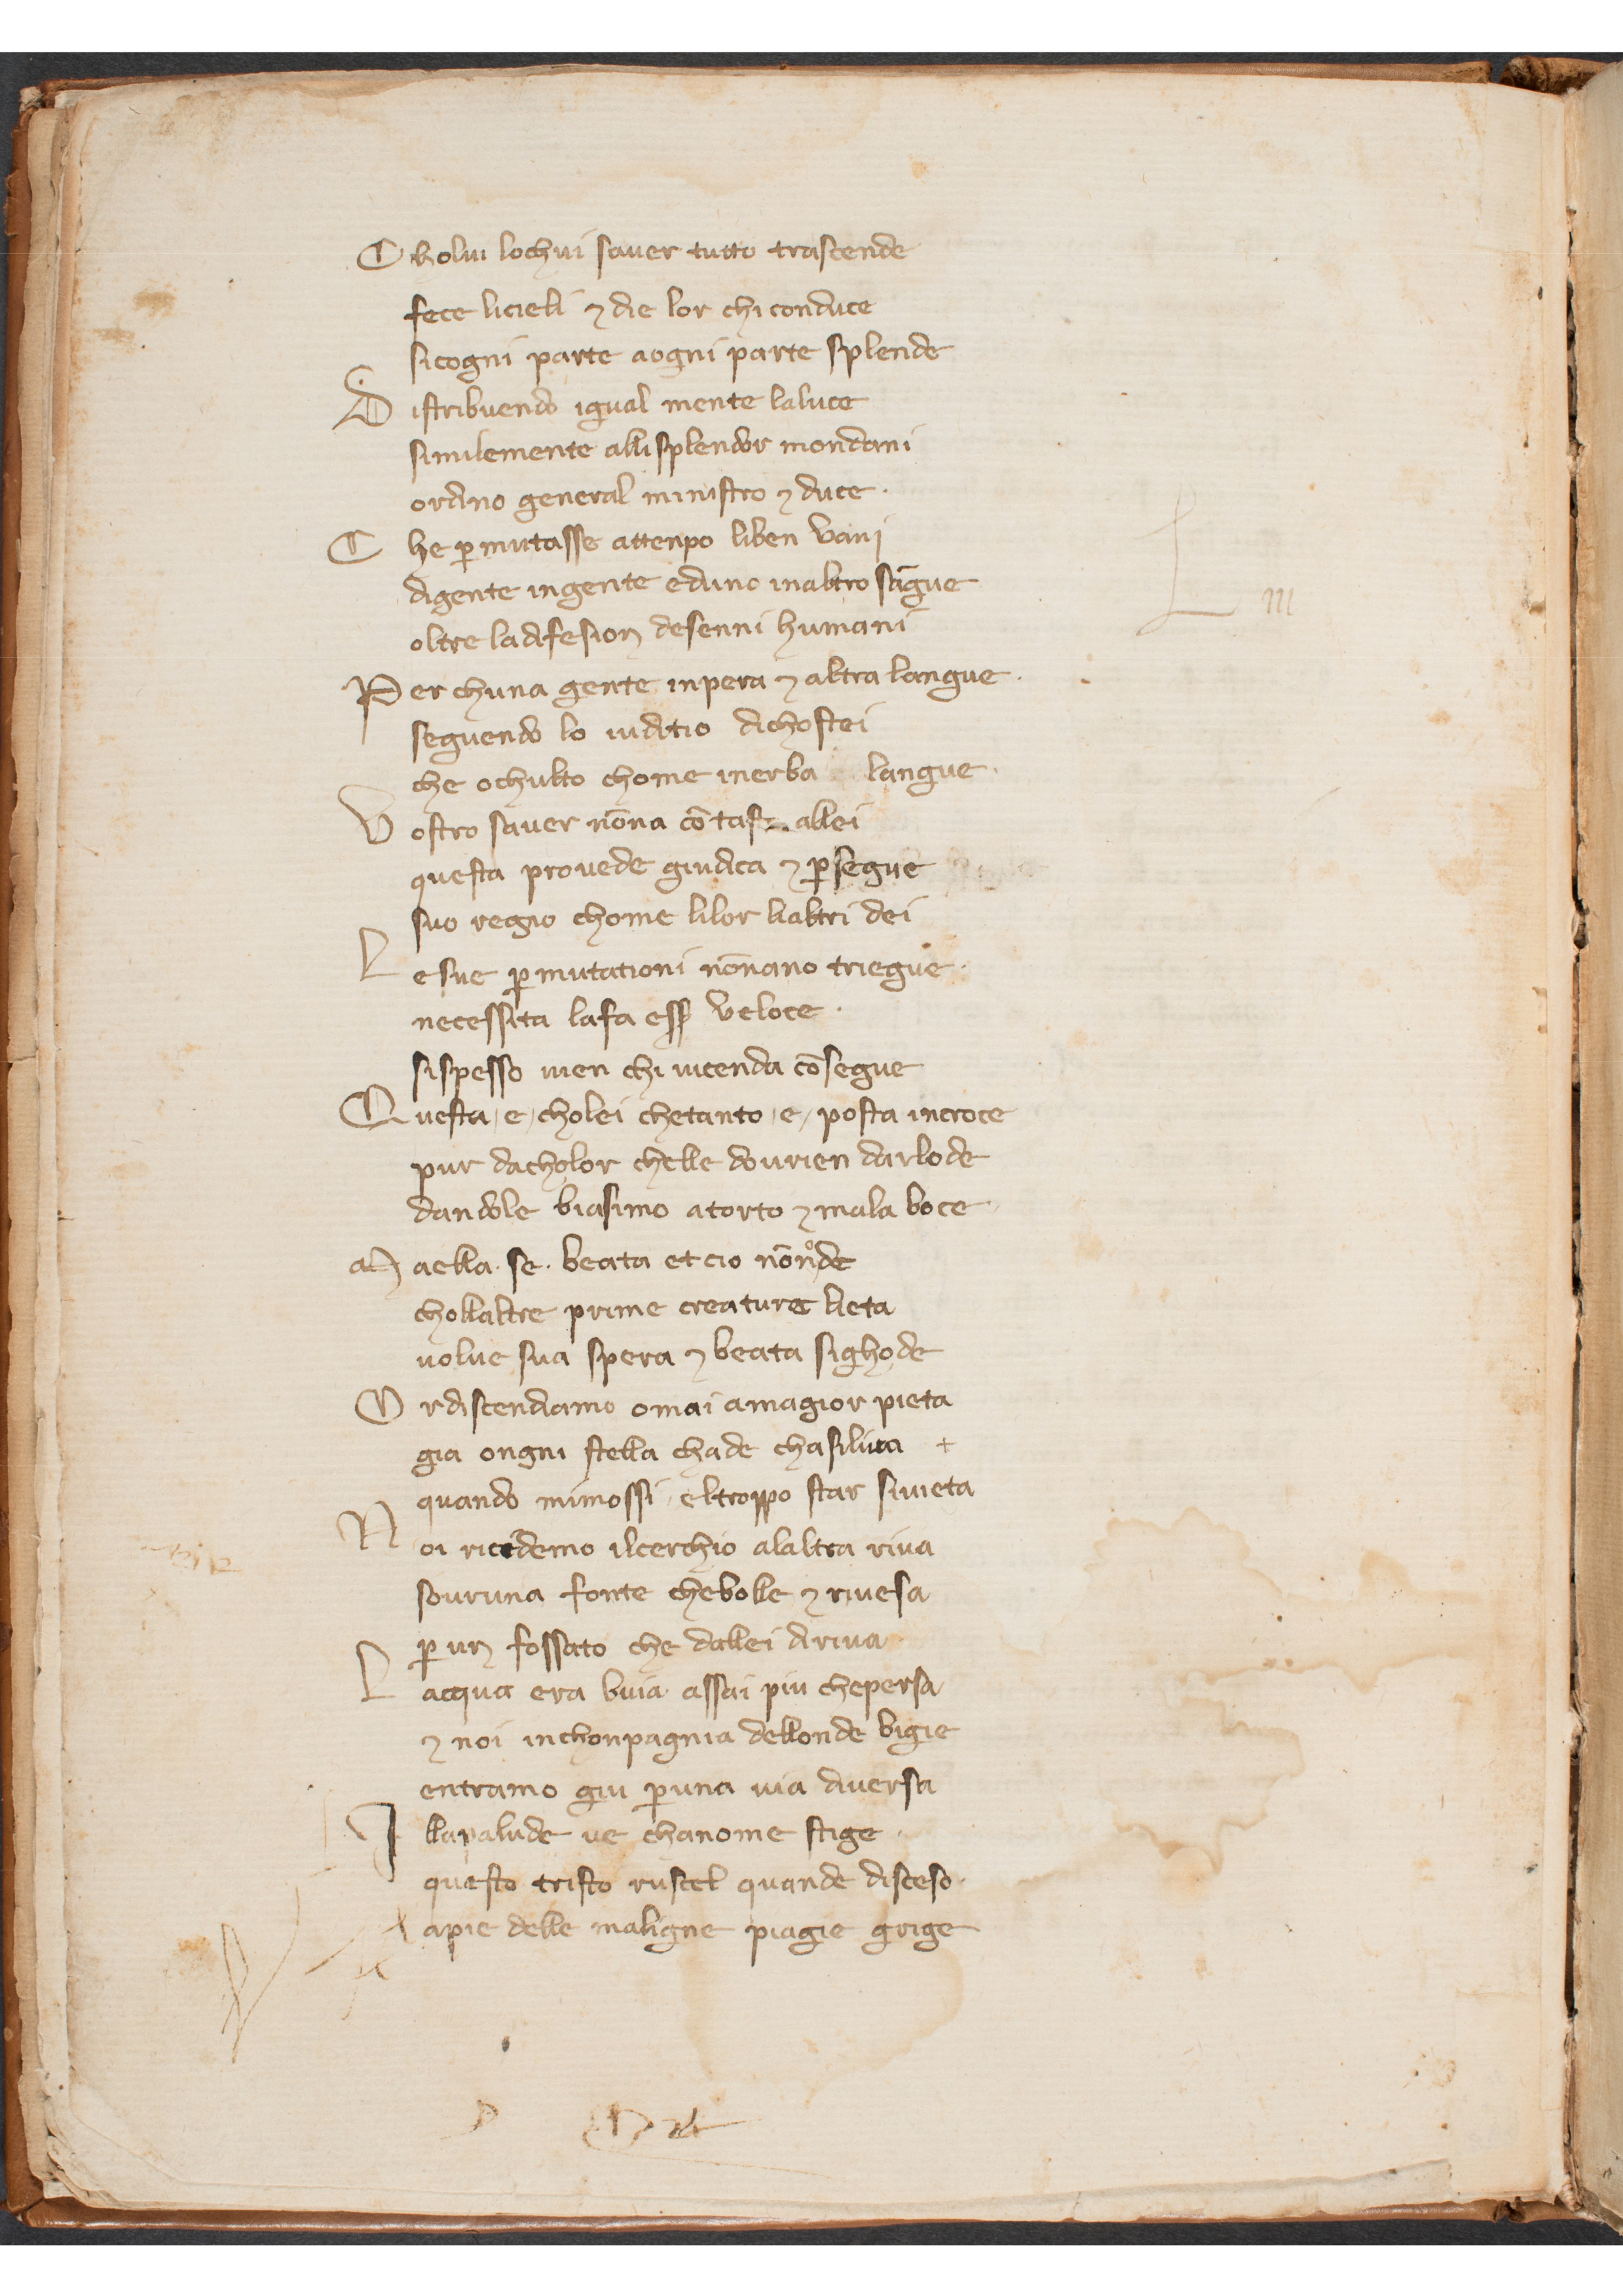 C volui lochui sauer tutto trascende
fece licieli ⁊ die lor chi conduce
sicogni parte aogni parte splende
D istribuendo igual mente laluce
similemente allisplendor mondani
ordino general ministro ⁊ duce ·
C he ꝑmutasse attenpo liben vani
digente ingente eduno inaltro sāgue
oltre ladifesion desenni humani
P er chuna gente inpera ⁊ altra langue ·
seguendo lo iuditio dichostei
che ochulto chome inerba langue ·
V ostro sauer nōna cōtasto allei
questa prouede giudica ⁊ ꝑsegue
suo regno chome lilor lialtri dei
L esue ꝑmutationi nōnano triegue ·
necessita lafa esser veloce ·
sispesso uien chi uicenda cōsegue
Q uesta / e / cholei chetanto / e / posta incroce
pur dacholor chelle dourien darlode
dandole biasimo atorto ⁊ mala boce
M aella · se · beata et cio nōnode
chollaltre prime creature lieta
uolue sua spera ⁊ beata sighode
O rdiscendiamo omai amagior pieta
gia ongni stella chade chasiliua +
quando mimossi / eltroppo star siuieta
N oi ricidemo ilcerchio alaltra riua
souruna fonte chebolle ⁊ riuersa
ꝑ un fossato che dallei diriua
L acqua era buia assai piu chepersa
⁊ noi inchonpagnia dellonde bigie
entramo giu ꝑuna uia diuersa
I llapalude ue chanome stige ·
questo tristo ruscel quande disceso ·
apie delle maligne piagie grige
L m